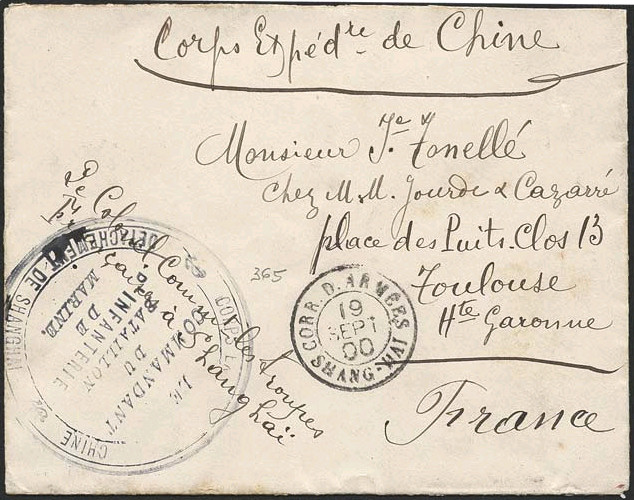 Corps Expédre de Chine
Monsieur Je Tonellé
chez M.M. Jourde & Cazarré
place des Puits-Clos 13
Toulouse
Hte Garonne
France
365
CORR. D. ARMEES
19
SEPT
00
SHANG-HAI
Colonel Commt les troupes
à Shanghaï
DETACHEMENT DE SHANGHAI
CORPS
CHINE
LE
COMMANDANT
DU
BATAILLON
D'INFANTERIE
DE
MARINE